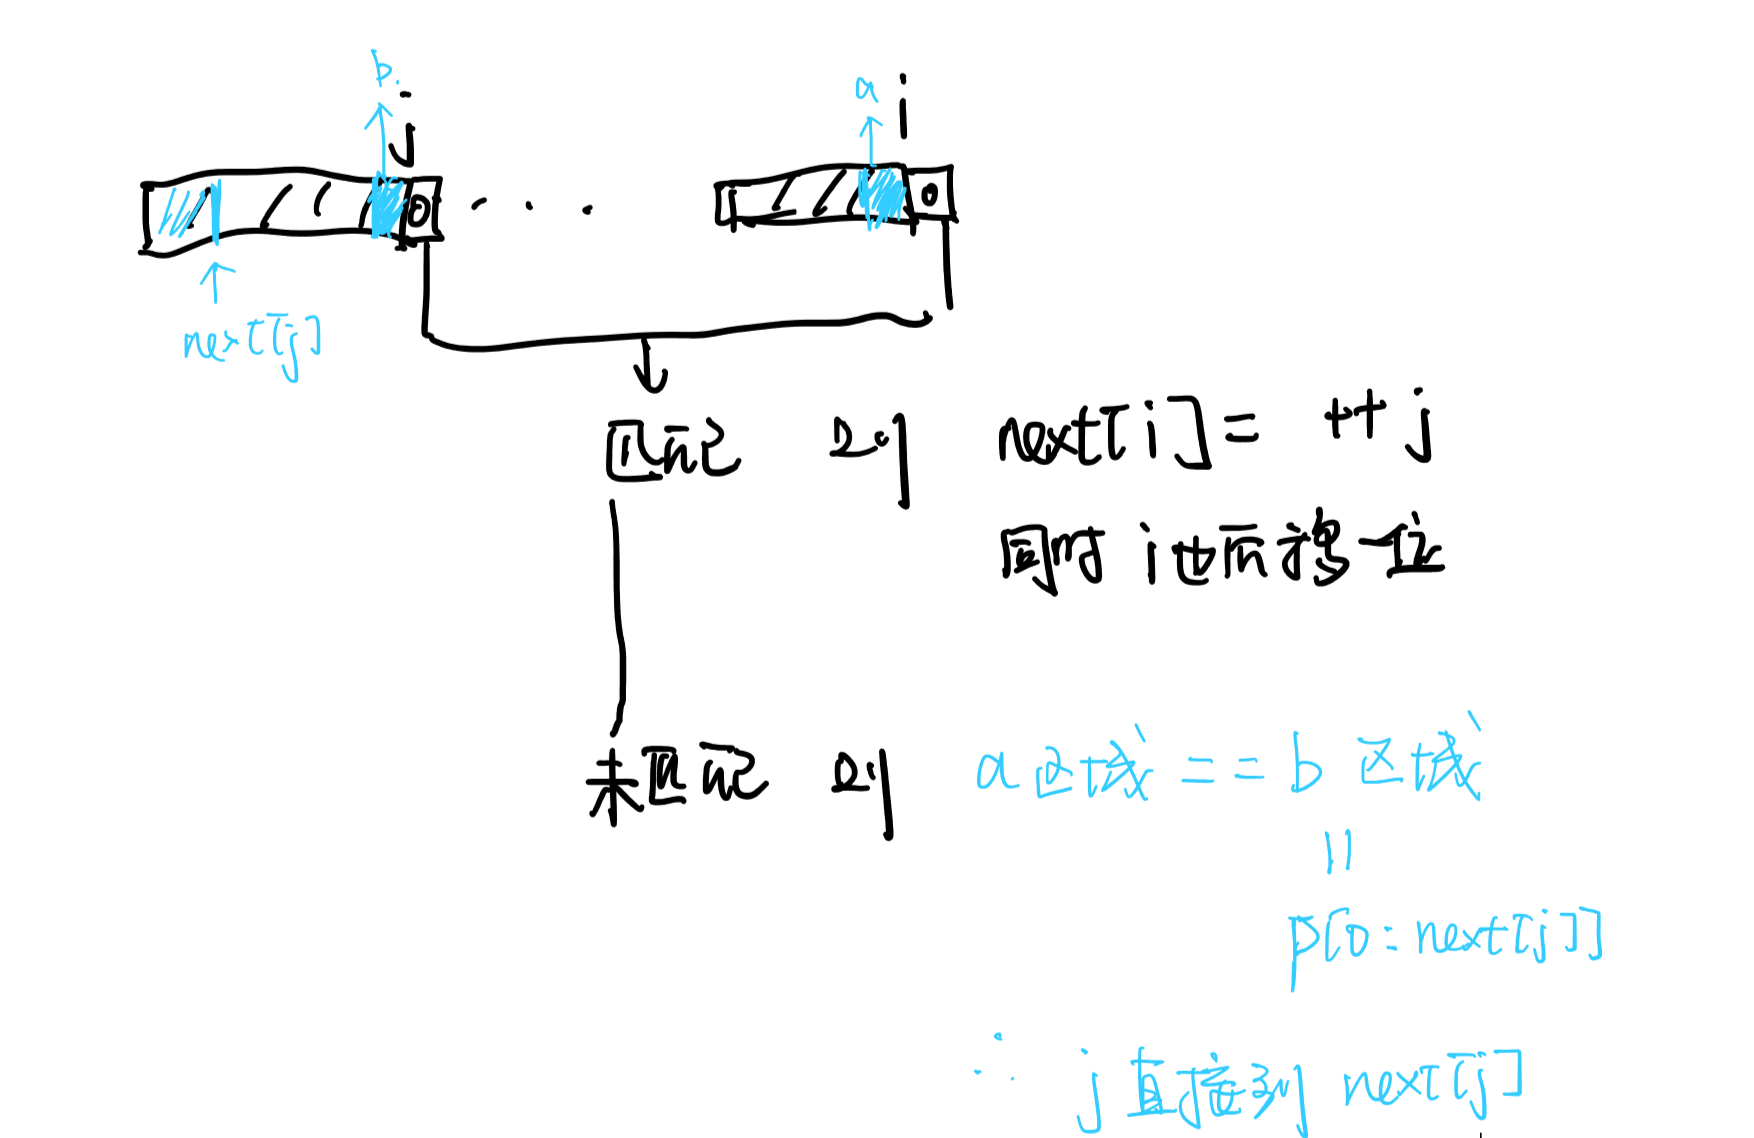 b.
j
a
i
next[j]
匹配 则 next[i] = ++j
同时 i也后移一位
未匹配 则 a区域 == b区域
||
p[0:next[j]]
∴ j直接到 next[j]